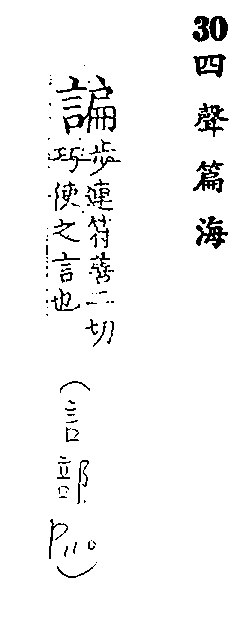 30四聲篇海
諞步連符蹇二切
巧使之言也
(言部
P110)